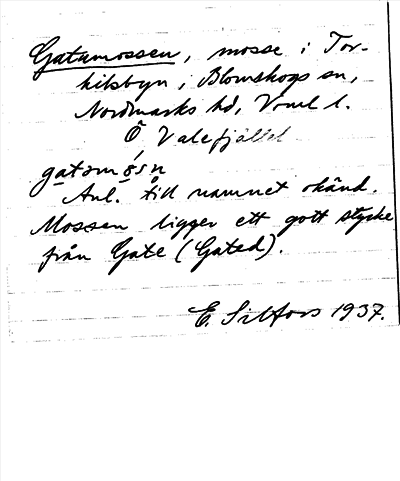 Gatumossen, mosse i Tor-
kilsbyn, Blomskogs sn,
Nordmarks hd, Vrml l.
Ö Valefjället
gatəmǿsn
Anl. till namnet okänd.
Mossen ligger ett gott stycke
från Gate (Gated).
E. Silfors 1937.